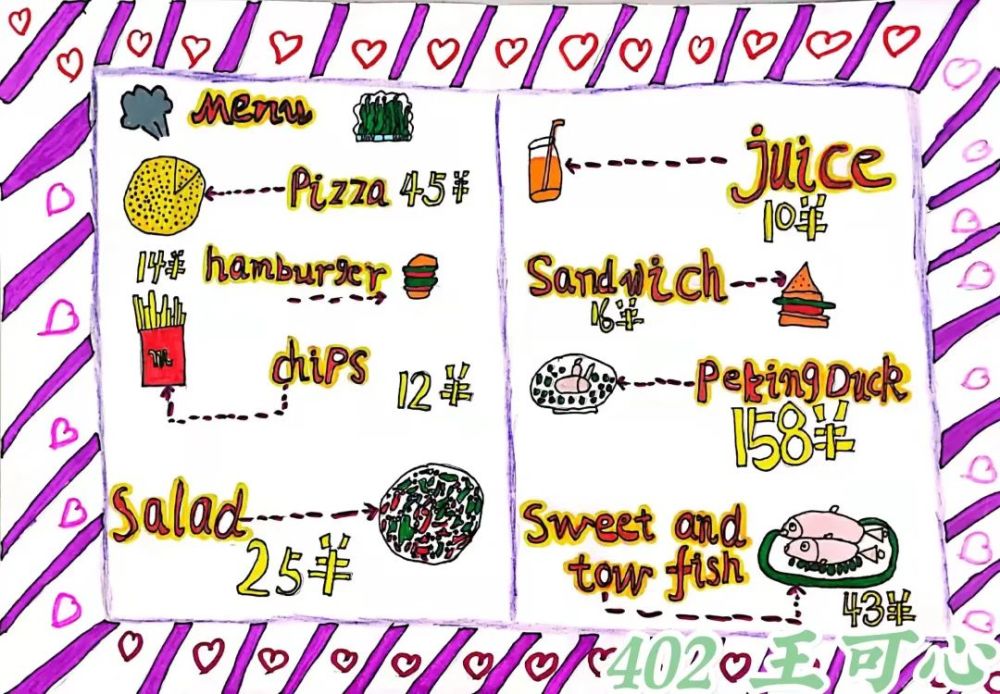 Menu
Pizza 45¥
14¥ hamburger
m
chips
12¥
Salad
25¥
juice
10¥
Sandwich
16¥
Peking Duck
158¥
Sweet and
tow fish
43¥
402 王可心